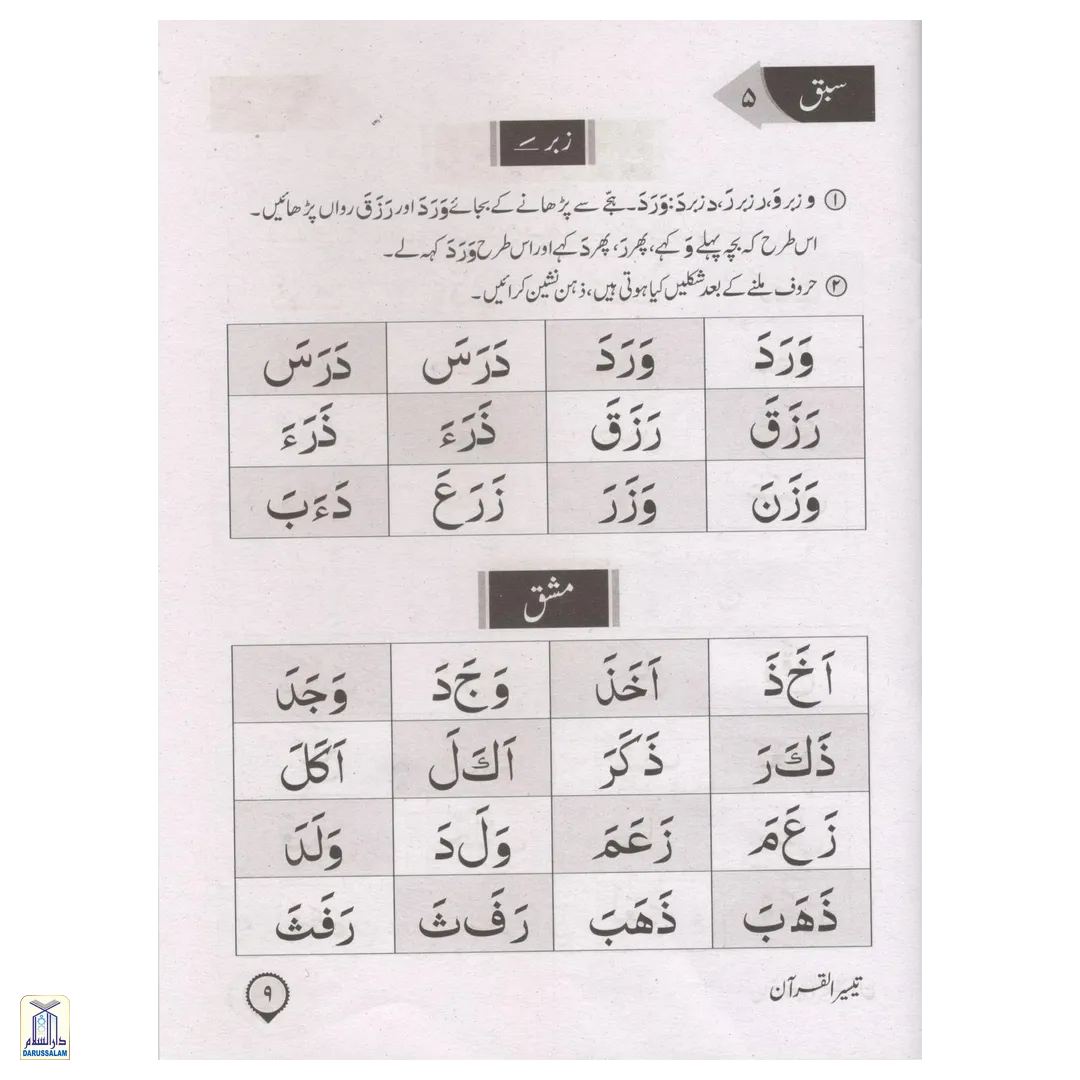 سبق ۵
زبر ـَ
① و زبر وَ، ر زبر رَ، د زبر دَ: وَرَدَ۔ ہجّے سے پڑھانے کے بجائے وَرَدَ اور رَزَقَ رواں پڑھائیں۔
اس طرح کہ بچہ پہلے وَ کہے، پھر رَ، پھر دَ کہے اور اس طرح وَرَدَ کہہ لے۔
② حروف ملنے کے بعد شکلیں کیا ہوتی ہیں، ذہن نشین کرائیں۔
وَرَدَ وَرَدَ دَرَسَ دَرَسَ
رَزَقَ رَزَقَ ذَرَءَ ذَرَءَ
وَزَنَ وَزَرَ زَرَعَ دَءَبَ
مشق
اَ خَ ذَ اَخَذَ وَ جَ دَ وَجَدَ
ذَ كَ رَ ذَكَرَ اَ كَ لَ اَكَلَ
زَ عَ مَ زَعَمَ وَ لَ دَ وَلَدَ
ذَ هَ بَ ذَهَبَ رَ فَ ثَ رَفَثَ
تیسیر القرآن
۹
دارالسلام
DARUSSALAM